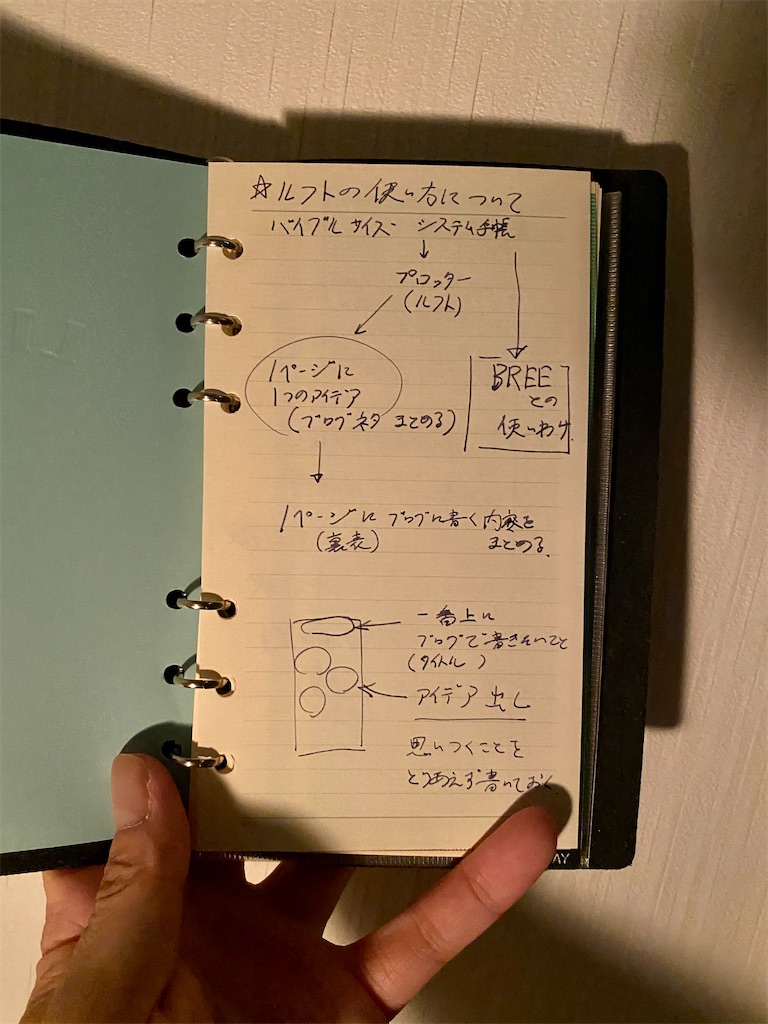 ☆ルフトの使い方について
バイブルサイズ システム手帳
↓
プロッター
(ルフト)
1ページに
1つのアイデア
(ブログネタ まとめる)
BREE
との
使いわけ
1ページに ブログに書く内容を
(裏表) まとめる。
一番上に
ブログで書きたいこと
(タイトル )
アイデア出し
思いつくことを
とりあえず書いておく
AY